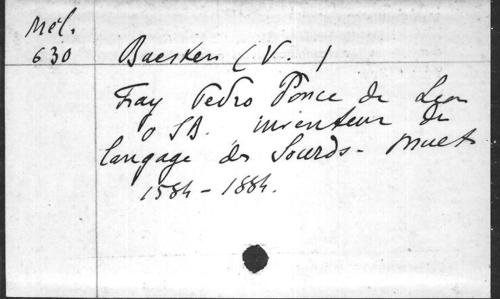 Mél.
630
Baesten (V. )
Fray Pedro Ponce de Leon
O SB. inventeur du
langage des Sourds-muets
1584-1884.